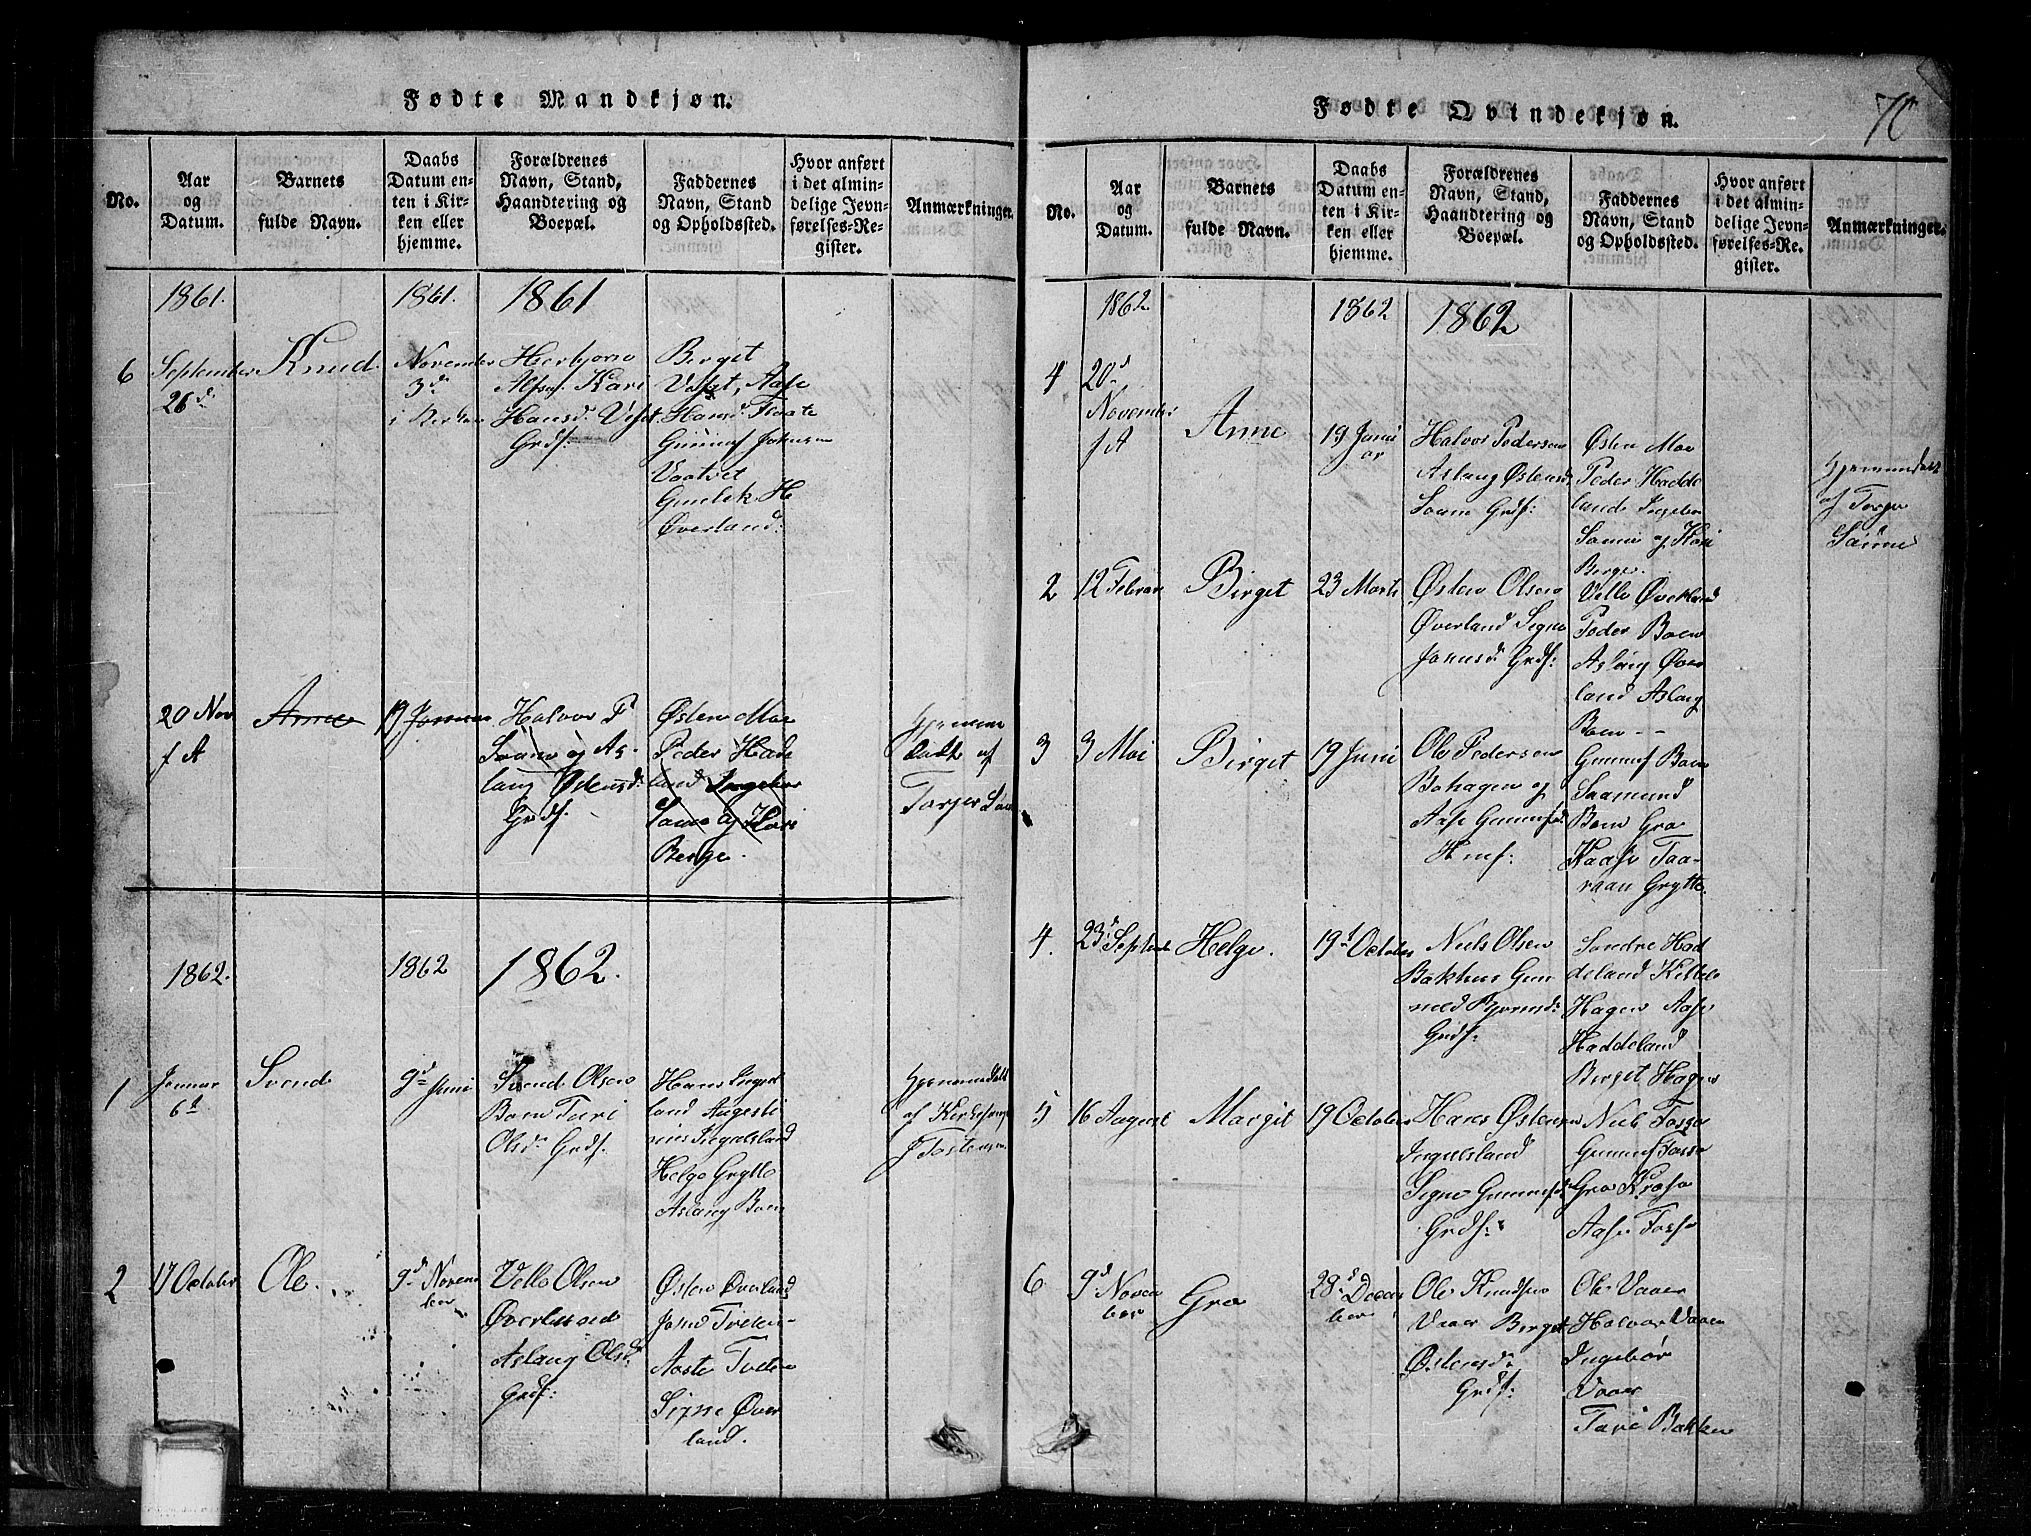 Fødte Mandkjøn.
No.
Aar
og
Datum.
Barnets
fulde Navn.
Daabs
Datum en-
ten i Kir-
ken eller
hjemme.
Forældrenes
Navn, Stand,
Haandtering og
Boepæl.
Faddernes
Navn, Stand
og Opholdssted.
Hvor anført
i det almin-
delige Jevn-
førelses-Re-
gister.
Anmærkninger.
1861.
1861.
1861
6
September
26d
Knud
November
3d
i Kirken
Herbjørn
Alfs. Kari
Hansd. Vest
Grdf:
Berget
Aase
Hansd.
Gunuf Johnsen
Vaatvet
Gunlek H
Øverland:
20 Nov
f A
Anne
19 Januar
Halvor P
Saum og As-
lang Østensd:
Grdf.
Østen Moe
Peder Hade
land Ingebor
Saum og Kari
Berge.
hjemme
døbt af
Torger Saum
1862.
1862
1862.
1
Januar
6d
Svend
9d Juni
Svend Olsen
Boen Turi
Olsd. Grdf.
Hans Ingul
land Augesti
nus Ingulsland
Helge Grytte
Aslaug Boen
hjemmedøbt
af Kirkesang
J Tostensen
2
17 October
Ole.
9d Novem
ber
Vello Olsen
Øverland
Aslaug Olsd.
Grdf:
Østen Øverland
John Tveten
Aaste Tveten
Signe Øver
land.
Fødte Qvindekjøn.
70
No.
Aar
og
Datum.
Barnets
fulde Navn.
Daabs
Datum en-
ten i Kir-
ken eller
hjemme.
Forældrenes
Navn, Stand,
Haandtering og
Boepæl.
Faddernes
Navn, Stand
og Opholdssted.
Hvor anført
i det almin-
delige Jevn-
førelses-Re-
gister.
Anmærkninger.
1862.
1862
1862
1
20d
November
f A
Anne
19 Janu
ar
Halvor Pedersen
Aslaug Østensd
Saum Grdf:
Østen Moe
Peder Hadde
land Ingebor
Saum og Kari
Berge.
hjemmedøbt
af Torger
Saum
2
12 Februar
Birget
23 Marts
Østen Olsen
Øverland Signe
Johnsd: Grdf:
Vello Øverland
Peder Boen
Aslaug Øver
land Aslaug
Boen
3
3 Mai
Birget
19 Juni
Ole Pedersen
Bohagen og
Aase Gunnufsd
Hmf:
Gunnuf Boen
Saamund
Boen Gro
Kaase Taa-
raan Grytte.
4.
23d Septbr
Helge.
19d October
Niels Olsen
Bakhus Gun
ned Bjørnsd:
Grdf:
Sondre Had
deland Kittel
Hagen Aase
Haddeland
Berget Hagen
5
16 August
Margit
19 October
Hans Østensen
Ingulsland
Signe Gunnufsd
Grdf:
Niels Fosso
Gunnuf Fosso
Gro Kraase
Aase Fosso
6
9d Novem
ber
Gro
28d Decem
ber
Ole Knudsen
Vaaer Berget
Østensd:
Grdf:
Ole Vaaer
Halvor Vaaer
Ingebør
Vaaer
Tari Bakken